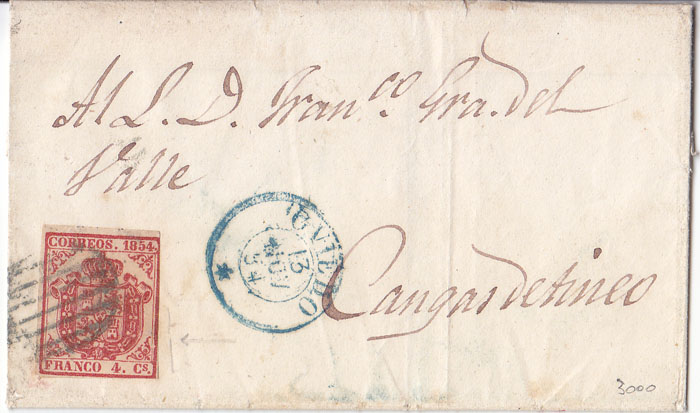 Al S. D. Fran.co Gra. del
Valle
Cangas de tineo
CORREOS. 1854.
FRANCO 4. Cs.
OVIEDO
13
54
3000